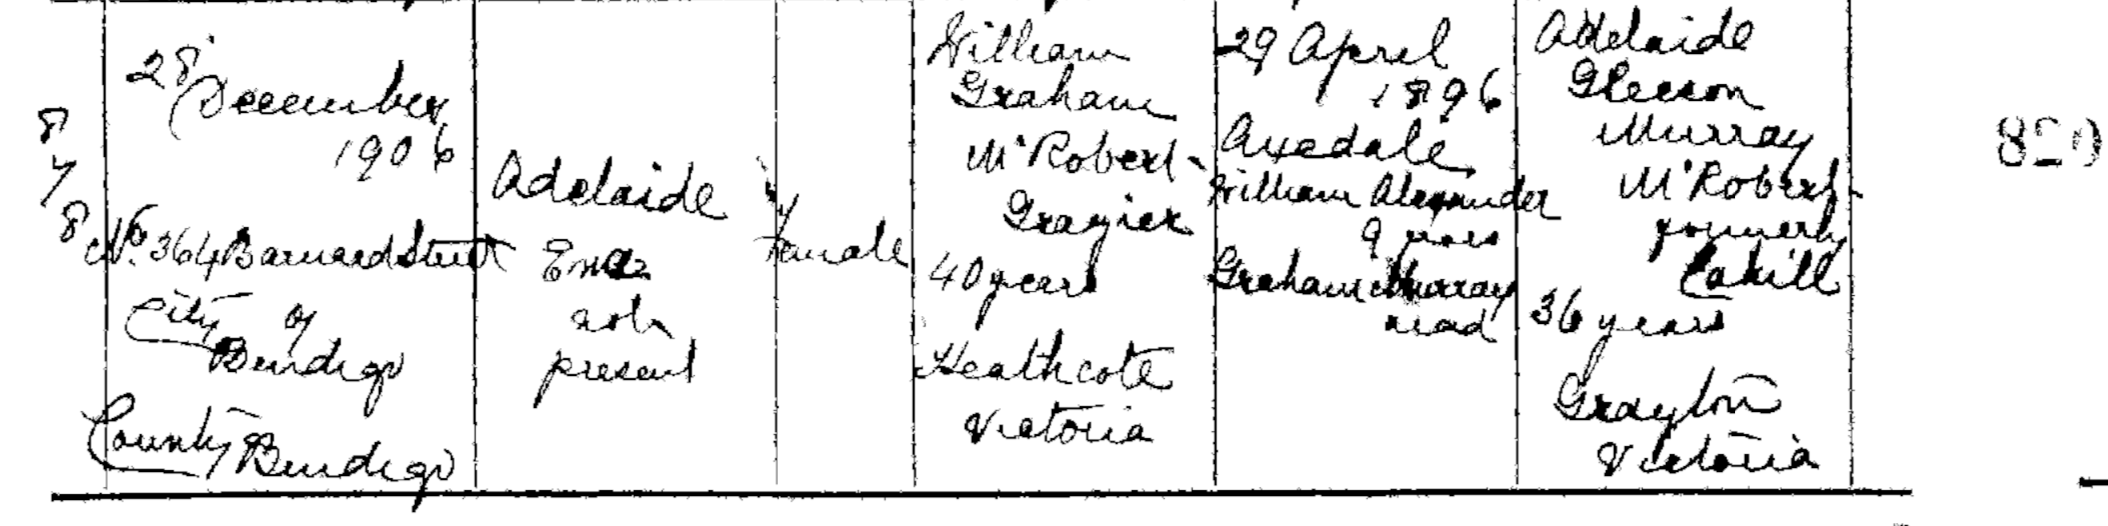 8
7
8
28
December
1906
No. 364 Barnard Street
City of
Bendigo
County
Bendigo
Adelaide
Ena
not
present
Female
William
Graham
McRobert
Grazier
40 years
Heathcote
Victoria
29 April
1896
Axedale
William Alexander
9 years
Graham Murray
dead
Adelaide
Gleeson
Murray
McRobert
formerly
Cahill
36 years
Victoria